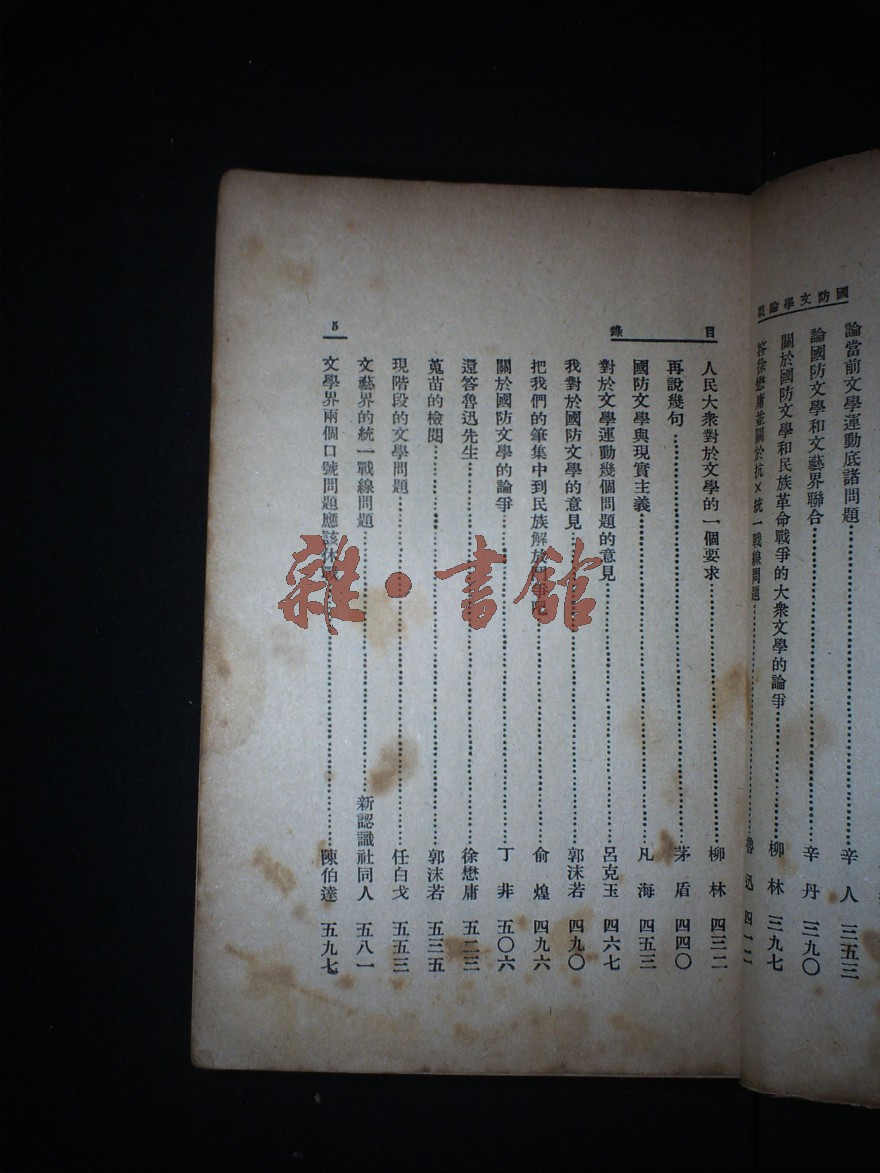 國防文學論戰
論當前文學運動底諸問題……辛人 三五三
論國防文學和文藝界聯合……辛丹 三九〇
關於國防文學和民族革命戰爭的大衆文學的論爭……柳林 三九七
答徐懋庸並關於抗×統一戰線問題……魯迅 四一二
目錄
人民大衆對於文學的一個要求……柳林 四三二
再說幾句……茅盾 四四〇
國防文學與現實主義……凡海 四五三
對於文學運動幾個問題的意見……呂克玉 四六七
我對於國防文學的意見……郭沫若 四九〇
把我們的筆集中到民族解放鬥爭吧……俞煌 四九六
關於國防文學的論爭……丁非 五〇六
還答魯迅先生……徐懋庸 五二三
蒐苗的檢閱……郭沫若 五三五
現階段的文學問題……任白戈 五五三
文藝界的統一戰線問題……新認識社同人 五八一
文學界兩個口號問題應該休戰……陳伯達 五九七
5
雜·書館